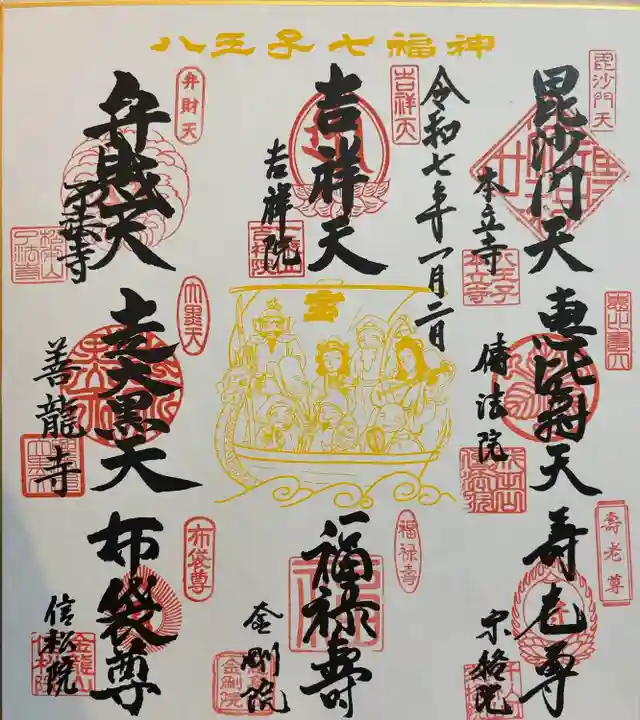 八王子七福神
毘沙門天
毘沙門天
本立寺
令和七年一月二日
吉祥天
吉祥天
吉祥院
弁財天
弁財天
了法寺
恵比寿天
傳法院
宝
大黒天
走大黒天
善龍寺
壽老尊
寿老尊
宗格院
福禄寿
福禄寿
金剛院
金剛院
布袋尊
布袋尊
信松院